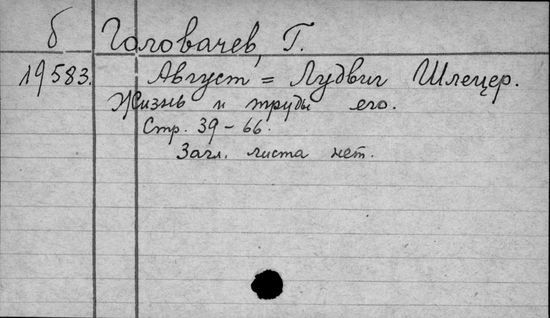 б Головачев, Г.
19583. Август = Лудвиг Шлецер.
Жизнь и труды его.
Стр. 39-66.
Загл. листа нет.